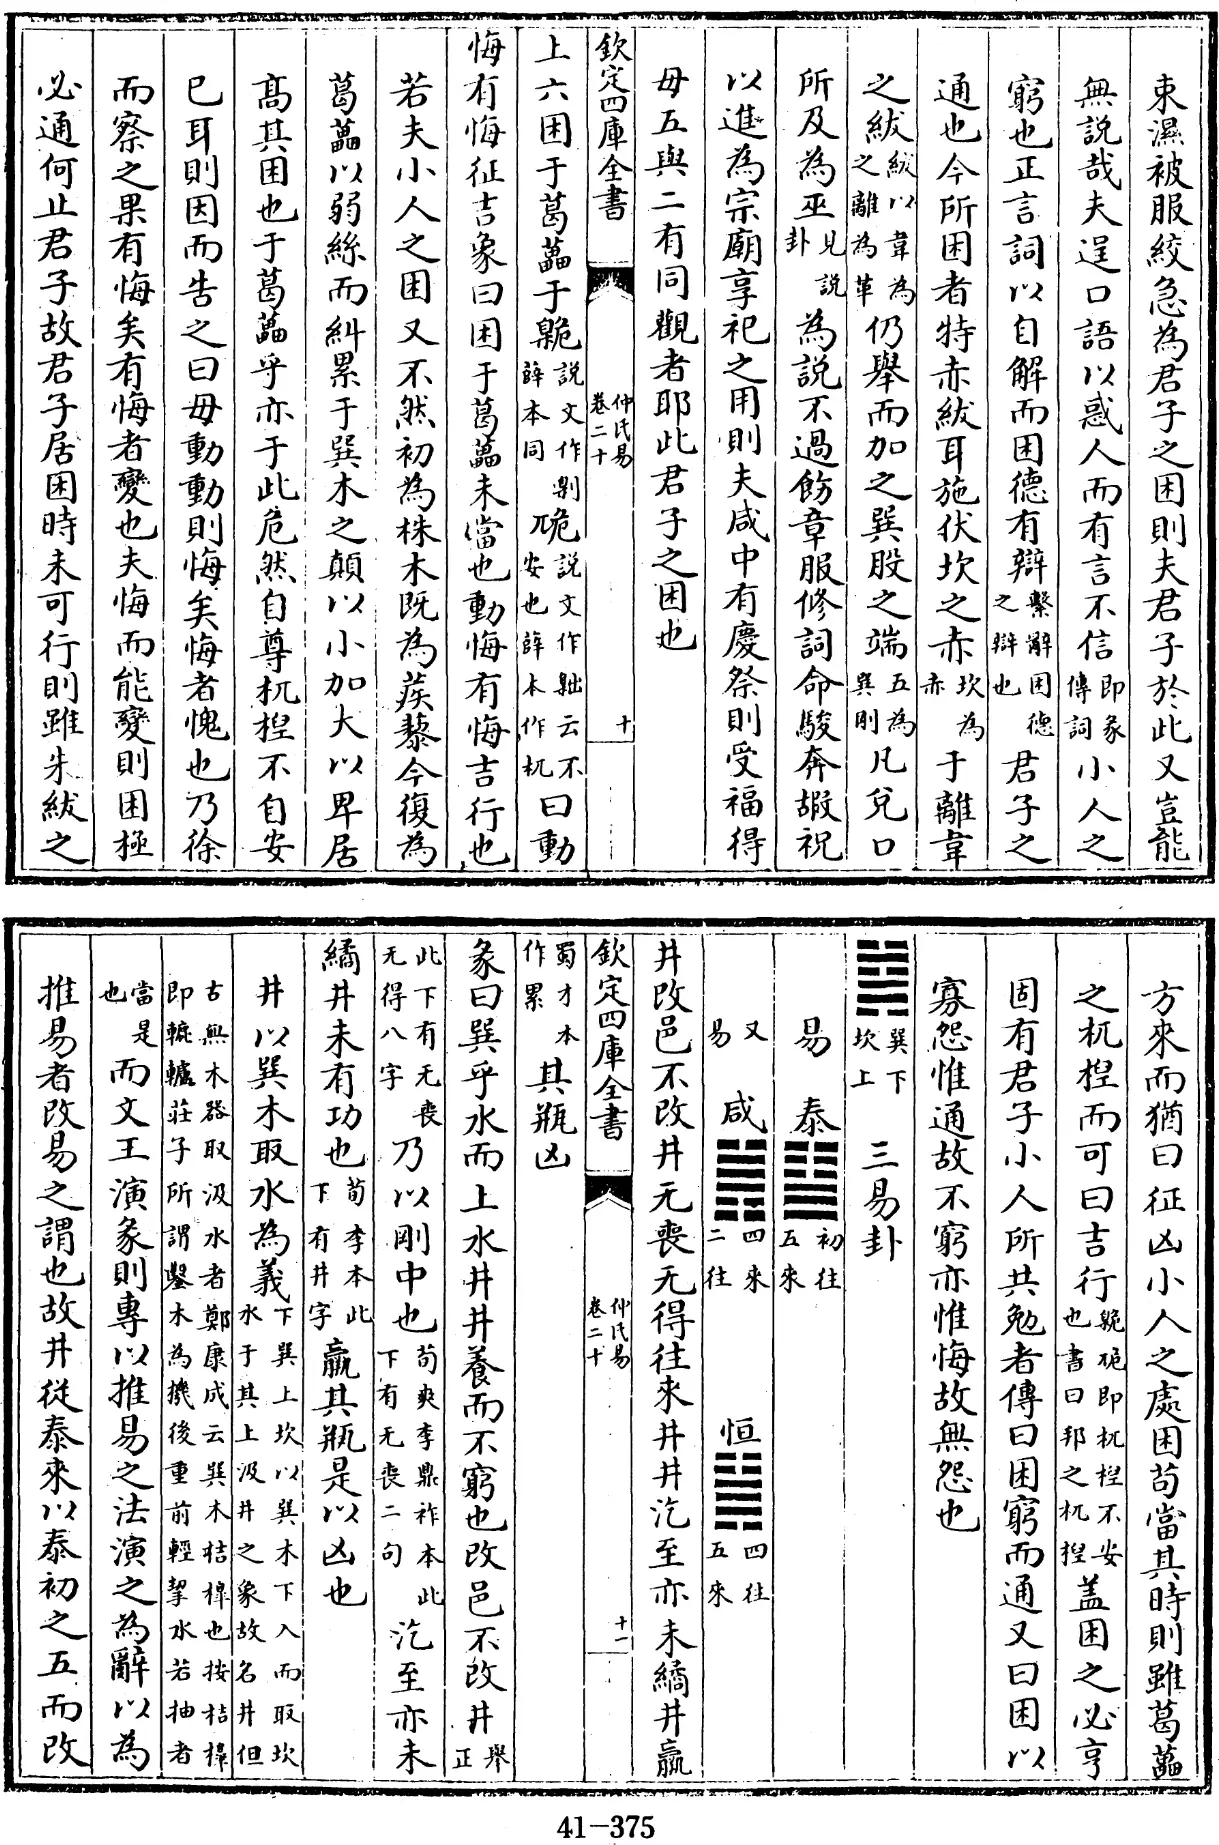 束濕被服絞急為君子之困則夫君子於此又豈能
無説哉夫逞口語以惑人而有言不信即彖傳詞小人之
窮也正言詞以自解而困德有辯繫辭困德之辯也君子之
通也今所困者特赤紱耳施伏坎之赤坎為赤于離韋
之紱紱以韋為之離為革仍舉而加之巽股之端五為巽剛凡兌口
所及為巫見説卦為説不過飭章服修詞命駿奔嘏祝
以進為宗廟享祀之用則夫咸中有慶祭則受福得
毋五與二有同觀者耶此君子之困也
欽定四庫全書 仲氏易卷二十 十
上六困于葛藟于臲説文作劓薛本同卼説文作䠳云不安也薛本作杌曰動
悔有悔征吉象曰困于葛藟未當也動悔有悔吉行也
若夫小人之困又不然初為株木既為蒺藜今復為
葛藟以弱絲而糾累于巽木之顛以小加大以卑居
高其困也于葛藟乎亦于此危然自尊杌隉不自安
已耳則因而告之曰毋動動則悔矣悔者愧也乃徐
而察之果有悔矣有悔者變也夫悔而能變則困極
必通何止君子故君子居困時未可行則雖朱紱之
方來而猶曰征凶小人之處困茍當其時則雖葛藟
之杌隉而可曰吉行臲卼即杌隉不安也書曰邦之杌隉盖困之必亨
固有君子小人所共勉者傳曰困窮而通又曰困以
寡怨惟通故不窮亦惟悔故無怨也
䷯巽下坎上 三易卦
易 泰䷊初往五來
又易 咸䷞四來二往 恒䷟四往五來
井改邑不改井无喪无得往來井井汔至亦未繘井羸
蜀才本作累其瓶凶
欽定四庫全書 仲氏易卷二十 十一
彖曰巽乎水而上水井井養而不窮也改邑不改井舉正
此下有无喪无得八字乃以剛中也荀爽李鼎祚本此下有无喪二句汔至亦未
繘井未有功也荀李本此下有井字羸其瓶是以凶也
井以巽木取水為義下巽上坎以巽木下入而取坎水于其上汲井之象故名井但
古無木器取汲水者鄭康成云巽木桔槔也按桔槔即轆轤莊子所謂鑿木為機後重前輕挈水若抽者
當是也而文王演彖則專以推易之法演之為辭以為
推易者改易之謂也故井從泰來以泰初之五而改
41-375